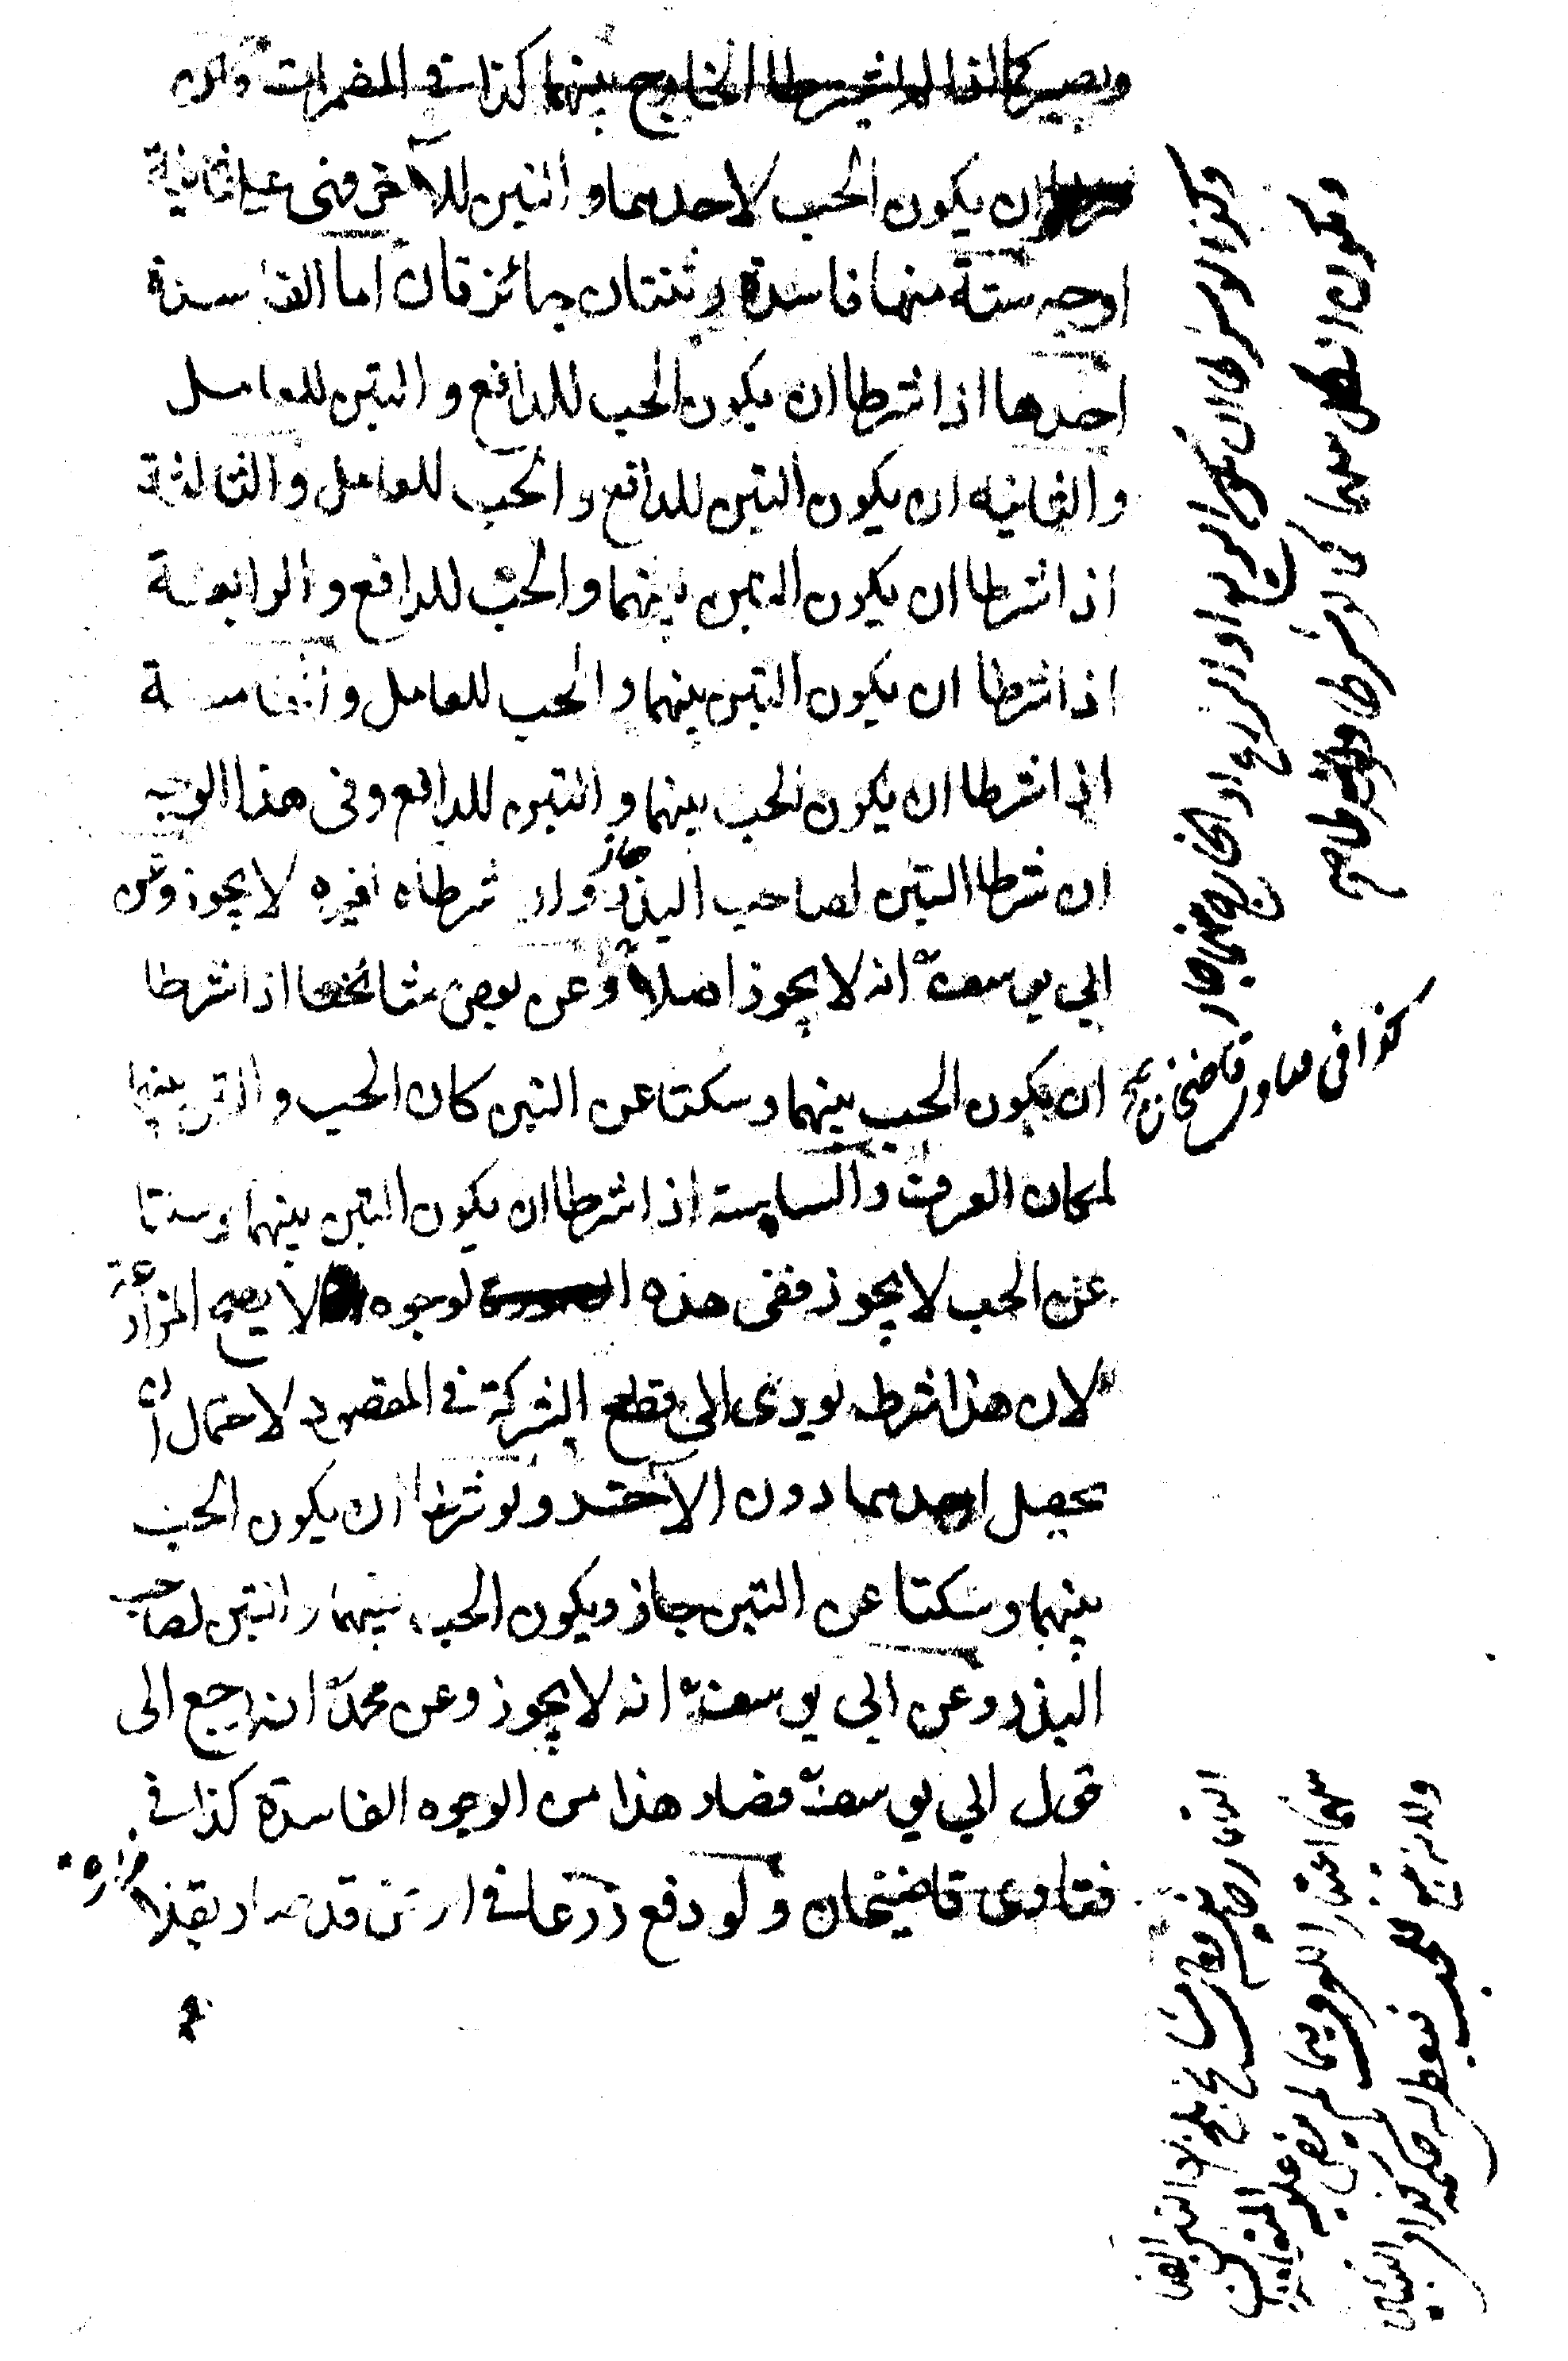 ويصير كما اذا لم يشترطا الخارج بينهما كذا في المضمرات وان
شرطا ان يكون الحب لاحدهما والتبن للآخر فهي على ثمانية
اوجه ستة منها فاسدة وثنتان جائزتان اما الفاسدة
احدها اذا شرطا ان يكون الحب للدافع والتبن للعامل
والثانيه ان يكون التبن للدافع والحب للعامل والثالثة
اذا شرطا ان يكون التبن بينهما والحب للدافع والرابعة
اذا شرطا ان يكون التبن بينهما والحب للعامل والخامسة
اذا شرطا ان يكون الحب بينهما والتبن للدافع وفي هذا الوجه
ان شرطا التبن لصاحب البذر جاز وان شرطاه لغيره لا يجوز وعن
ابي يوسف انه لا يجوز اصلا وعن بعض مشائخنا اذا شرطا
ان يكون الحب بينهما وسكتا عن التبن كان الحب والتبن بينهما
لمكان العرف والسادسة اذا شرطا ان يكون التبن بينهما وسكتا
عن الحب لا يجوز ففي هذه الوجوه لا يصح المزارعة
لان هذا شرط يودى الى قطع الشركة في المقصود لاحتمال ان
يحصل احدهما دون الآخر ولو شرطا ان يكون الحب
بينهما وسكتا عن التبن جاز ويكون الحب بينهما والتبن لصاحب
البذر وعن ابي يوسف انه لا يجوز وعن محمد انه رجع الى
قول ابي يوسف فصار هذا من الوجوه الفاسدة كذا في
فتاوى قاضيخان ولو دفع زرعا في ارض قد صار بقلا مزارعة
وكذا لو شرطا ان يكون الريع او الزرع او الخارج بينهما جاز
ويكون الكل بينهما كما لو شرطا
كذا في فتاوى قاضيخان
وقال مشايخ بلخ التبن ايضا
بينهما اعتبارا للعرف فيما لم ينص عليه المتعاقدان
ولانه تبع للحب فيعطى له حكمه كذا في التبيان